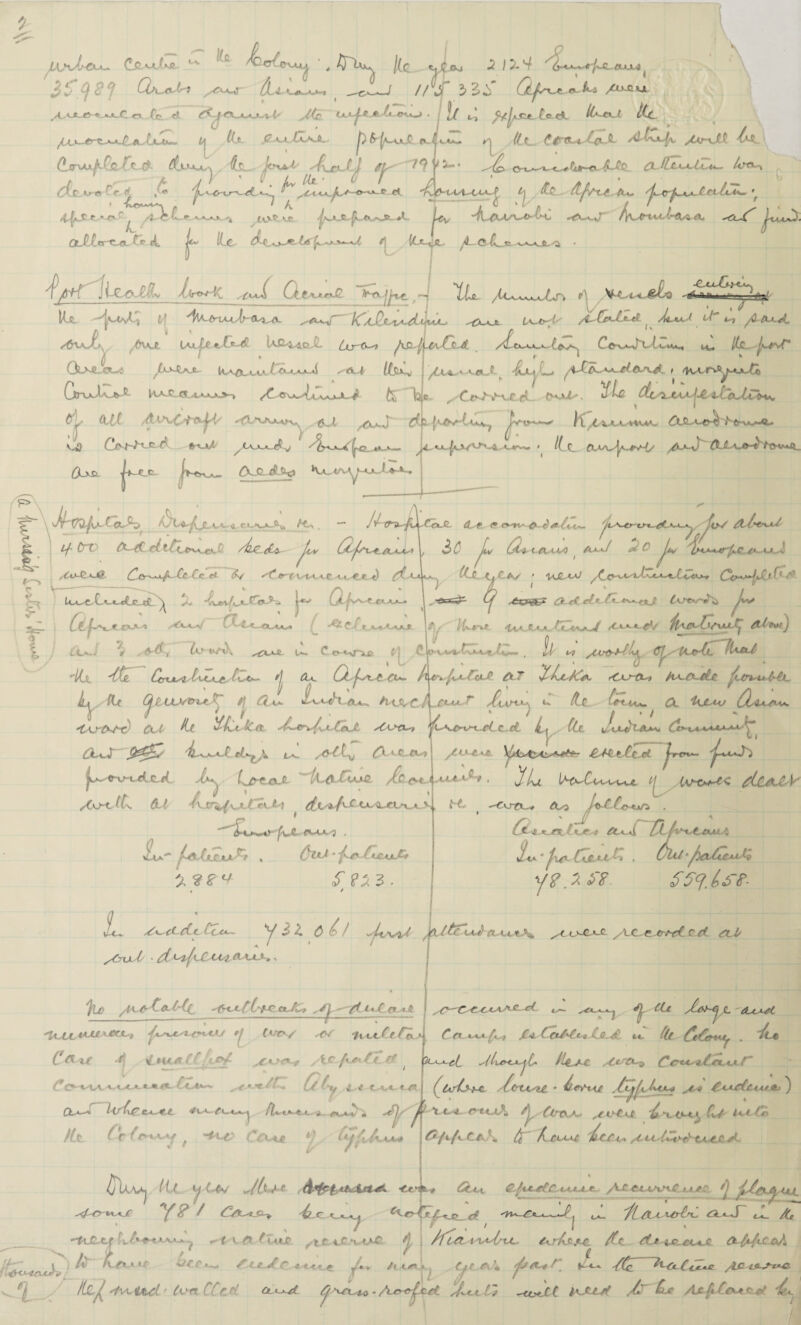 2
urban centre in the Colony. During the year 2124 Europeans,
35,989 Arabs and Asians, and 115,335 Africans were
inoculated against the infection. It is expected that the
inoculation of the entire population of the coastal strip will be
completed during the first half of 1942. Considerable attention was
devoted to providing for the improved housing of the African population;
special housing schemes were prepared for Nairobi and Mombasa and funds
allocated for the development of these schemes.
Port Health Work and Aerial Traffic. – The number of vessels entering
the ports of Mombasa and Kilindini are not stated, but it is said
only one infected vessel was reported. Sanitary conditions in the port
areas were maintained at their usual high standard; mosquito
control measures continued to be carried out. The disinfestation
of all aircraft arriving at and departing from Kisumu aerodrome
is carried out under European supervision; the airport and aerodrome
are free from aedes mosquitoes.
Hospitals, Dispensaries etc. – Hospital accomodation providing for about
400 additional beds for Africans, 30 for Asians, and 20 for Europeans
were completed or commenced during the year; new construction completed
included (a nursing sisters' Home) 2 hospitals for Africans 9 additional wards for
Africans and Asians (exclusive of those mentioned under Maternity above)
and 3 other wards are in course of construction. It is worthy of note that
the the construction of an African hospital at Thika was made possible
by the generosity of an Indian merchant living in the town, a new Asian
ward at the Thika hospital was provided by the Indian Community,
and buildings in other areas were erected from funds
provided by Local Native Councils. The volume of work dealt
with at hospitals, dispensaries etc, was as follows.
Europeans. Asiatics and Africans
In-patients. Out-patients In-patients. Out-patients
2,884 5,823. 48,258 559,658.
In addition 432,061 first attendances were recorded at
out-dispensaries.
No notable outbreaks of disease occurred in any of the large and
numerous prisoner of war or military camps established in the Colony. No
case of smallpox was reported, and though there was constant
communication with Abyssinia (where louse-borne typhus is endemic)
and whence many thousands of prisoners of war were brought into
the Colony, no case of typhus appears to have been introduced
During the year there was an epidemic recurrence of plague
some 781 cases being notified, mainly in Nairobi and in the
neighbouring native reserve of Kiambu where the disease appears
to have been endemic for many years past. In the native reserve
thousands of the mud-walled and grass-roofed huts will need to be replaced by